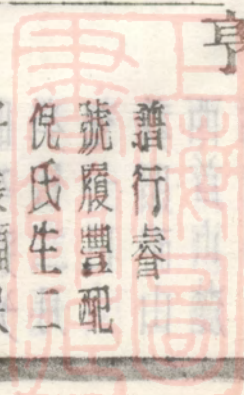 亨
譜行睿
號履豐配
倪氏生二